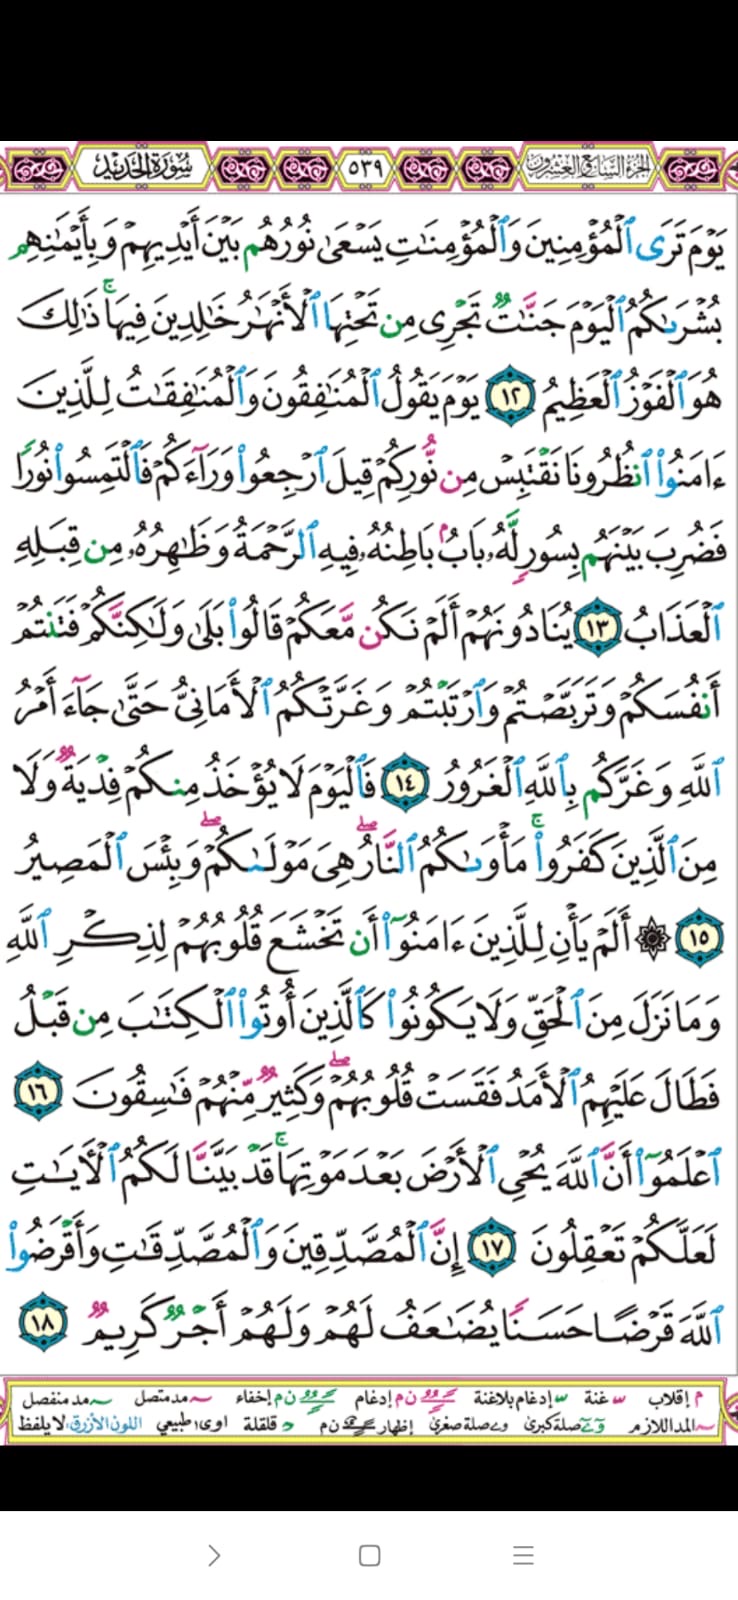 الجزء السابع والعشرون ٥٣٩ سورة الحديد
يَوْمَ تَرَى ٱلْمُؤْمِنِينَ وَٱلْمُؤْمِنَٰتِ يَسْعَىٰ نُورُهُم بَيْنَ أَيْدِيهِمْ وَبِأَيْمَٰنِهِم
بُشْرَىٰكُمُ ٱلْيَوْمَ جَنَّٰتٌ تَجْرِى مِن تَحْتِهَا ٱلْأَنْهَٰرُ خَٰلِدِينَ فِيهَا ۚ ذَٰلِكَ
هُوَ ٱلْفَوْزُ ٱلْعَظِيمُ ١٢ يَوْمَ يَقُولُ ٱلْمُنَٰفِقُونَ وَٱلْمُنَٰفِقَٰتُ لِلَّذِينَ
ءَامَنُوا۟ ٱنظُرُونَا نَقْتَبِسْ مِن نُّورِكُمْ قِيلَ ٱرْجِعُوا۟ وَرَآءَكُمْ فَٱلْتَمِسُوا۟ نُورًا
فَضُرِبَ بَيْنَهُم بِسُورٍ لَّهُۥ بَابٌۢ بَاطِنُهُۥ فِيهِ ٱلرَّحْمَةُ وَظَٰهِرُهُۥ مِن قِبَلِهِ
ٱلْعَذَابُ ١٣ يُنَادُونَهُمْ أَلَمْ نَكُن مَّعَكُمْ قَالُوا۟ بَلَىٰ وَلَٰكِنَّكُمْ فَتَنتُمْ
أَنفُسَكُمْ وَتَرَبَّصْتُمْ وَٱرْتَبْتُمْ وَغَرَّتْكُمُ ٱلْأَمَانِىُّ حَتَّىٰ جَآءَ أَمْرُ
ٱللَّهِ وَغَرَّكُم بِٱللَّهِ ٱلْغَرُورُ ١٤ فَٱلْيَوْمَ لَا يُؤْخَذُ مِنكُمْ فِدْيَةٌ وَلَا
مِنَ ٱلَّذِينَ كَفَرُوا۟ ۚ مَأْوَىٰكُمُ ٱلنَّارُ ۖ هِىَ مَوْلَىٰكُمْ ۖ وَبِئْسَ ٱلْمَصِيرُ
١٥ ۞ أَلَمْ يَأْنِ لِلَّذِينَ ءَامَنُوٓا۟ أَن تَخْشَعَ قُلُوبُهُمْ لِذِكْرِ ٱللَّهِ
وَمَا نَزَلَ مِنَ ٱلْحَقِّ وَلَا يَكُونُوا۟ كَٱلَّذِينَ أُوتُوا۟ ٱلْكِتَٰبَ مِن قَبْلُ
فَطَالَ عَلَيْهِمُ ٱلْأَمَدُ فَقَسَتْ قُلُوبُهُمْ ۖ وَكَثِيرٌ مِّنْهُمْ فَٰسِقُونَ ١٦
ٱعْلَمُوٓا۟ أَنَّ ٱللَّهَ يُحْىِ ٱلْأَرْضَ بَعْدَ مَوْتِهَا ۚ قَدْ بَيَّنَّا لَكُمُ ٱلْءَايَٰتِ
لَعَلَّكُمْ تَعْقِلُونَ ١٧ إِنَّ ٱلْمُصَّدِّقِينَ وَٱلْمُصَّدِّقَٰتِ وَأَقْرَضُوا۟
ٱللَّهَ قَرْضًا حَسَنًا يُضَٰعَفُ لَهُمْ وَلَهُمْ أَجْرٌ كَرِيمٌ ١٨
م إقلاب غنة إدغام بلاغنة ن م إدغام ن م إخفاء مد متصل مد منفصل
المد اللازم صلة كبرى صلة صغرى إظهار ن م قلقلة اوى طبيعي اللون الأزرق لا يلفظ